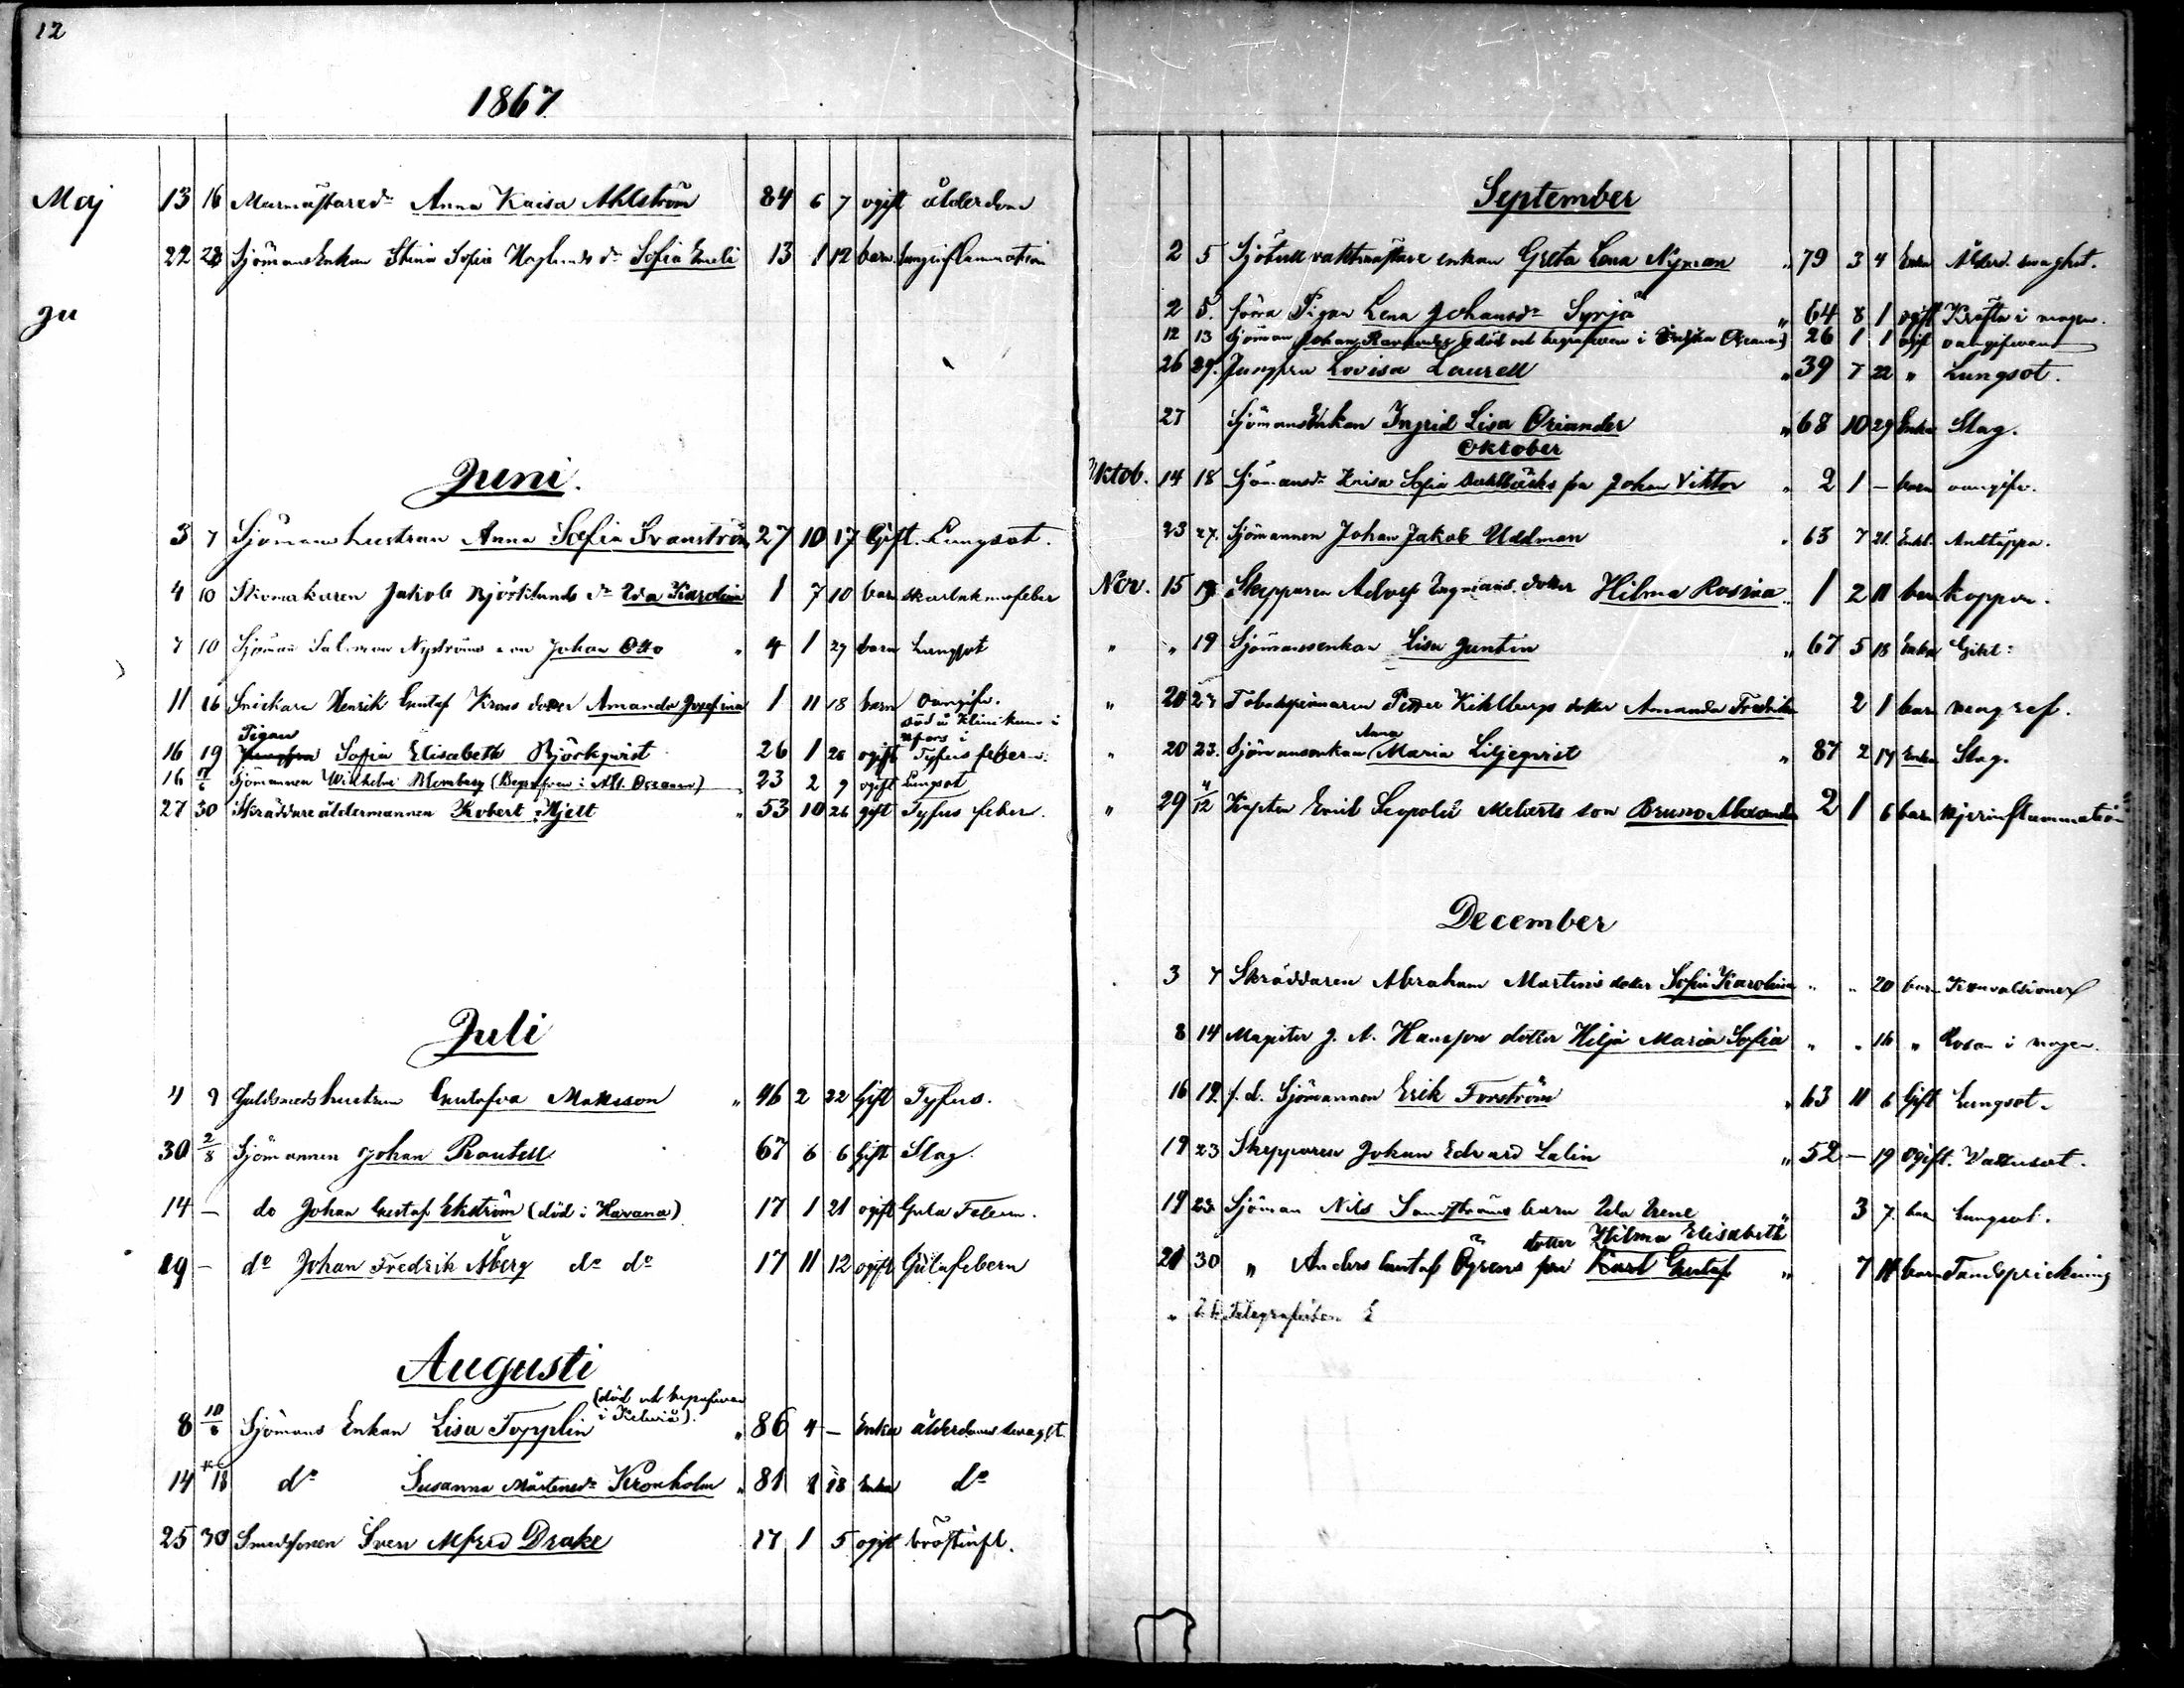 12
1867
Maj 13 16 Murmästared:r Anna Kaisa Ahlström 84 6 7 ogift ålderdom
22 28 Sjömans Enkan Stina Sofia Haglunds d:r Sofia Emeli 13 1 12 barn Lunginflammation
Ju
Juni.
3 7 Sjömans hustrun Anna Sofia Svanström 27 10 17 Gift. Lungsot.
4 10 Skomakaren Jakob Björklunds d:r Ida Karolina 1 7 10 barn skarlakansfeber
7 10 Sjöman Salomon Nyströms son Johan Otto " 4 1 29 barn Lungsot
11 16 Snickare Henrik Gustaf Krons dotter Amanda Josefina 1 11 18 barn oangifv.
död å Klinikum i
Pigan Hfors i
16 19 Jungfru Sofia Elisabeth Björkqvist 26 1 26 ogift Tyfus febern.
16 17/6 Sjömannen Wilhelm Blomberg (Begrafven i Atl. Oceanen) 23 2 9 ogift Lungsot
27 30 Skräddareåldermannen Robert Hjelt " 53 10 26 gift Tyfus feber.
Juli
4 9 Guldsmedshustrun Gustafva Mattsson " 46 2 22 Gift Tyfus.
30 2/8 Sjömannen Johan Rautell 67 6 6 Gift Slag.
14 – do Johan Gustaf Ekström (död i Havana) 17 1 21 ogift Gula Febern.
19 – d:o Johan Fredrik Åberg d:o d:o 17 11 12 ogift Gulafebern
Augusti
(död och begrafven
i Kelviå).
8 10/8 Sjömans Enkan Lisa Topplin " 86 4 – Enka ålderdomssvaght.
14 18 d:o Susanna Mårtensd:r Kronholm " 81 1 18 Enka d:o
25 30 Smedssonen Sven Alfred Drake 17 1 5 ogift bröstinfl.
September
2 5 Sjötull vaktmästare enkan Greta Lena Nyman " 79 3 4 Enka Ålderd. svaghet.
2 5. förra Pigan Lena Johansd:r Syrjä " 64 8 1 ogift Kräfta i magen.
12 13 Sjöman Johan (död och begrafven i Indiska Oceanen) 26 1 1 ogift oangifven
26 29. Jungfru Lovisa Laurell " 39 7 22 " Lungsot.
27 Sjömans Enkan Ingrid Lisa Oriander " 68 10 29 Enka Slag.
Oktober
Oktob. 14 18 Sjömansd:r Kaisa Sofia Dahlbäcks son Johan Viktor " 2 1 – barn oangifv.
23 27. Sjömannen Johan Jakob Uddman " 63 7 21. Enkl. Andtäppa.
Nov. 15 19 Skepparen Adolf Ingmans dotter Hilma Rosina " 1 2 11 barn koppor.
" " 19 Sjömansenkan Lisa Juntin " 67 5 18 Enka Gikt.
" 20 27 Tobakspinnaren Petter Kihlbergs dotter Amanda Fredrika 2 1 barn magref.
Anna
" 20 23. Sjömansenkan Maria Liljeqvist " 87 2 14 Enka Slag.
" 29 4/12 Kapten Emil Leopold Melarts son Bruno Alexander 2 1 6 barn Hjerninflammation
December
3 7 Skräddaren Abraham Martins dotter Sofia Karolina " " 20 barn Konvulsioner
8 14 Magister J. A. Hanssons dotter Hilja Maria Sofia " " 16 " Rosen i magen.
16 19 f. d. Sjömannen Erik Forström " 63 11 6 Gift Lungsot.
19 23 Skepparen Johan Edvard Lalin " 52 – 19 Ogift. Vattusot.
19 23 Sjöman Nils Sandströms barn Ida Irene " 3 7. barn Lungsot.
dotter Hilma Elisabeth
21 30 " Anders Gustaf Ögrens son Karl Gustaf " 7 11 barn Tandsprickning
" Telegrafisten E